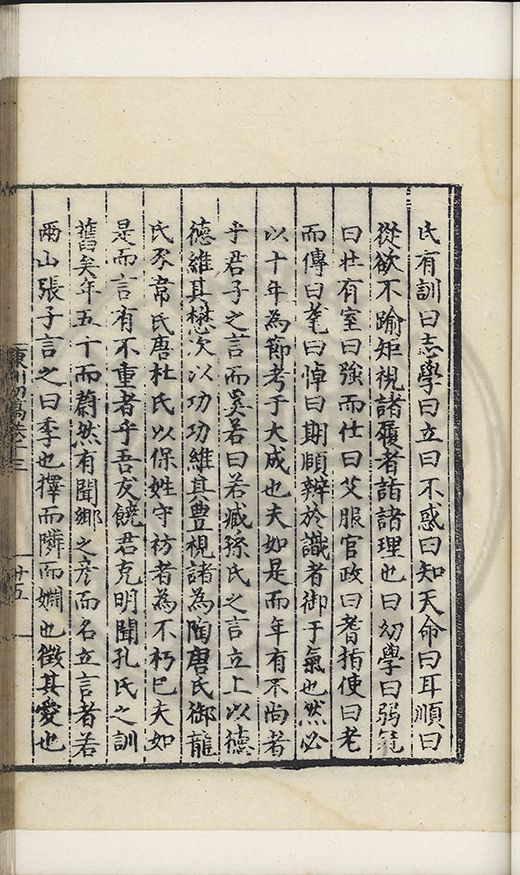 氏有訓曰志學曰立曰不惑曰知天命曰耳順曰
從欲不踰矩視諸履者詣諸理也曰幼學曰弱冠
曰壯有室曰強而仕曰艾服官政曰耆指使曰老
而傳曰耄曰悼曰期頤辨於識者御于氣也然必
以十年為節考于大成也夫如是而年有不尚者
乎君子之言而異若曰若臧孫氏之言立上以德
德維其懋次以功功維其豊視諸為陶唐氏御龍
氏豕韋氏唐杜氏以保姓守祊者為不朽已夫如
是而言有不重者乎吾友饒君克明聞孔氏之訓
舊矣年五十而蔚然有聞鄉之彥而名立言者若
兩山張子言之曰季也擇而隣而姻也徵其愛也
東川初稿卷十三
廿五